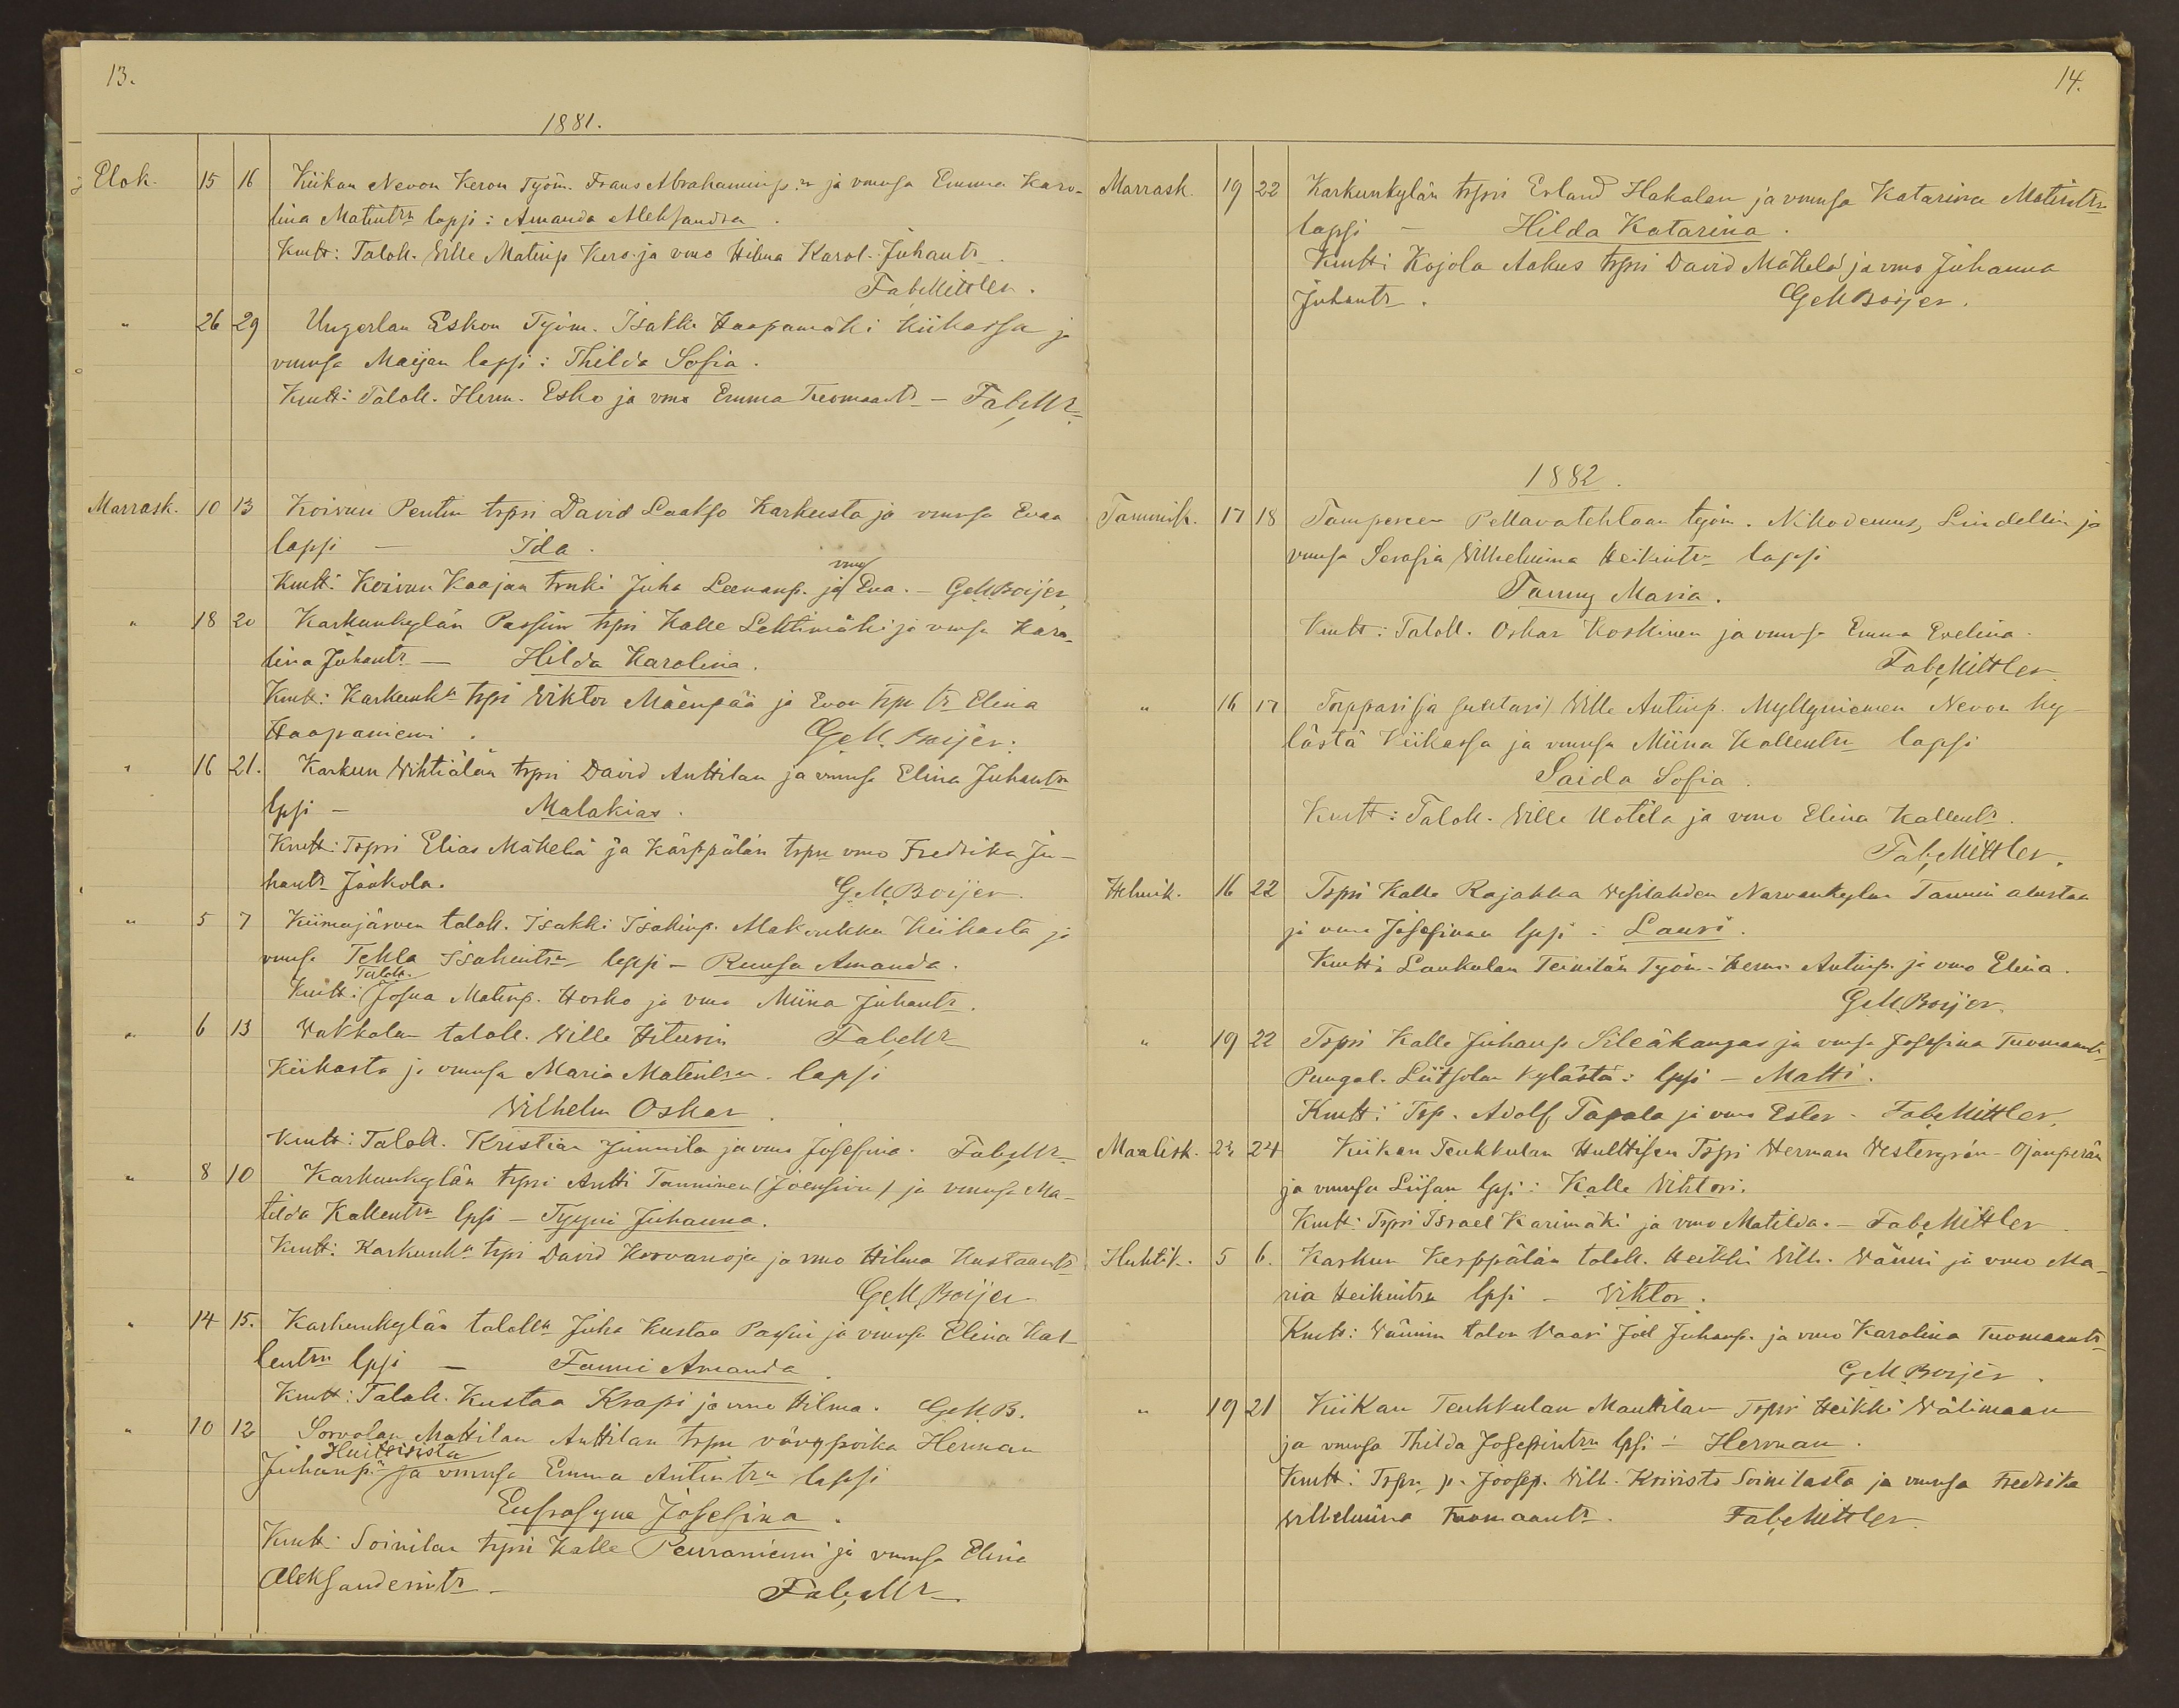 13.
1881.
Elok. 15 16 Kiikan Nevon Keron Työm. Frans Abrahaminp.n ja vmnsa Emma Karo-
lina Matintrn lapsi: Amanda Aleksandra.
Kmtt: Taloll. Wille Matinp Kero ja vmo Hilma Karol. Juhantr.
Fab. Mittler.
" 26 29 Ungerlan Eskon Työm. Isakki Haapamäki Kiikassa ja
vmnsa Maijan lapsi: Thilda Sofia.
Kmtt: Taloll. Herm. Esko ja vmo Emma Tuomaantr – Fab. Mr
Marrask. 10 13 Koivun Pentin trpri David Laakso Karkusta ja vmnsa Evaa
lapsi – Ida.
Kmtt: Koivun Kaajan trnki Juha Leenanp. ja vmo Eva. – G.M.Boijer
" 18 20 Karkunkylän Passin trpri Kalle Lehtimäki ja vmnsa Karo-
lina Juhantr – Hilda Karolina.
Kmtt: Karkunkn trpri Wiktor Mäenpää ja Evon trpn tr Elina
Haapaniemi. G.M. Boijer.
" 16 21. Karkun Wihtiälän trpri David Anttilan ja vmnsa Elina Juhantrn
lpsi – Malakias.
Kmtt: Trpri Elias Mäkelä ja Kärppälän trpn vmo Fredrika Ju-
hantr Jaakola. G.M.Boijer.
" 5 7 Kiimajärven taloll. Isakki Isakinp. Makonkka Kiikasta ja
vmnsa Tekla Isakintrn lapsi – Ruusa Amanda.
Kmtt: Taloll. Josua Matinp. Horko ja vmo Miina Juhantr.
" 6 13 Wakkalan taloll. Wille Hiturin Fab. Mr
Kiikasta ja vmnsa Maria Matintrn lapsi
Wilhelm Oskar.
Kmtt: Taloll. Kristian Junnila ja vmo Josefina. Fab. Mr
" 8 10 Karkunkylän trpri Antti Tanninen (Joensuu) ja vmnsa Ma-
tilda Kallentrn lpsi – Tyyni Juhanna.
Kmtt: Karkunkn trpri David Korvanoja ja vmo Hilma Kustaantr
G.M. Boijer
" 14 15. Karkunkylän talolln Juha Kustaa Passin ja vmnsa Elina Kal-
lentrn lpsi – Fanni Amanda.
Kmtt: Taloll. Kustaa Krapi ja vmo Hilma. G.M.B.
" 10 12 Sorvolan Mattilan Anttilan trpn vävypoika Herman
Juhanp.n Huittisista ja vmnsa Emma Antintrn lapsi
Eufrosyne Josefina.
Kmtt: Soinilan trpri Kalle Peuraniemi ja vmnsa Elina
Aleksanderintr – Fab. Mr
14.
Marrask. 19 22 Karkunkylän trpri Erland Hakalan ja vmnsa Katarina Matintrn
lapsi – Hilda Katarina.
Kmtt: Kojola Aakus trpri David Mäkelä ja vmo Juhanna
Juhantr. G.M.Boijer.
1882.
Tammik. 17 18 Tampereen Pellavatehtaan työm. Nikodemus Lindellin ja
vmnsa Serafia Wilhelmina Heikintrn lapsi
Fanny Maria.
Kmtt: Taloll. Oskar Koskinen ja vmnsa Emma Evelina.
Fab. Mittler
" 16 17 Torppari (ja suutari) Wille Antinp. Myllyniemen Nevon ky-
lästä Kiikassa ja vmnsa Miina Kallentrn lapsi
Saida Sofia.
Kmtt: Taloll. Wille Uotila ja vmo Elina Kallentr.
Fab. Mittler.
Helmik. 16 22 Trpri Kalle Rajakka Wesilahden Narvankylän Tannin alustaa
ja vmo Josefinan lpsi: Lauri.
Kmtt: Laukulan Teinilän Työm. Herm. Antinp. ja vmo Elina.
G.M.Boijer
" 19 22 Trpri Kalle Juhanp Sileäkangas ja vmnsa Josefina Tuomaantr
Pungal. Liitsolan kylästä: lpsi – Matti.
Kmtt: Trp. Adolf Tapala ja vmo Ester. Fab. Mittler,
Maalisk. 23 24 Kiikan Teukkulan Hulttisen Trpri Herman Westergrén-Ojanperän
ja vmnsa Liisan lpsi: Kalle Wihtori.
Kmtt: Trpri Israel Karimäki ja vmo Matilda. – Fab. Mittler.
Huhtik. 5 6. Karkun Kerppälän taloll. Heikki Wilh. Wänni ja vmo Ma-
ria Heikintrn lpsi – Wiktor.
Kmtt: Wännin talon Vaari Joel Juhanp. ja vmo Karolina Tuomaantr
G.M.Boijer.
" 19 21 Kiikan Teukkulan Maukilan Trpri Heikki Wälimaan
ja vmnsa Thilda Josefintrn lpsi – Herman.
Kmtt: Trpn p. Joosep. Wilh. Kiviistö Soinilasta ja vmnsa Fredrika
Wilhelmina Tuomaantr. Fab. Mittler.